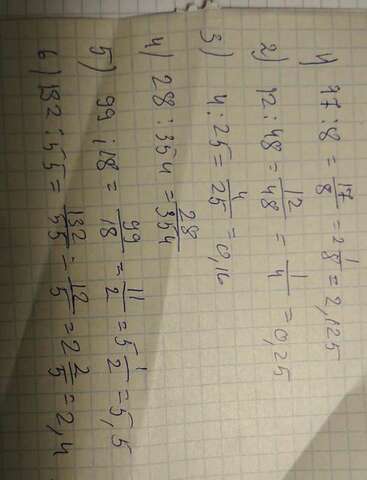 1) 17 : 8 = 17/8 = 2 1/8 = 2,125
2) 12 : 48 = 12/48 = 1/4 = 0,25
3) 4 : 25 = 4/25 = 0,16
4) 28 : 354 = 28/354
5) 99 : 18 = 99/18 = 11/2 = 5 1/2 = 5,5
6) 132 : 55 = 132/55 = 12/5 = 2 2/5 = 2,4